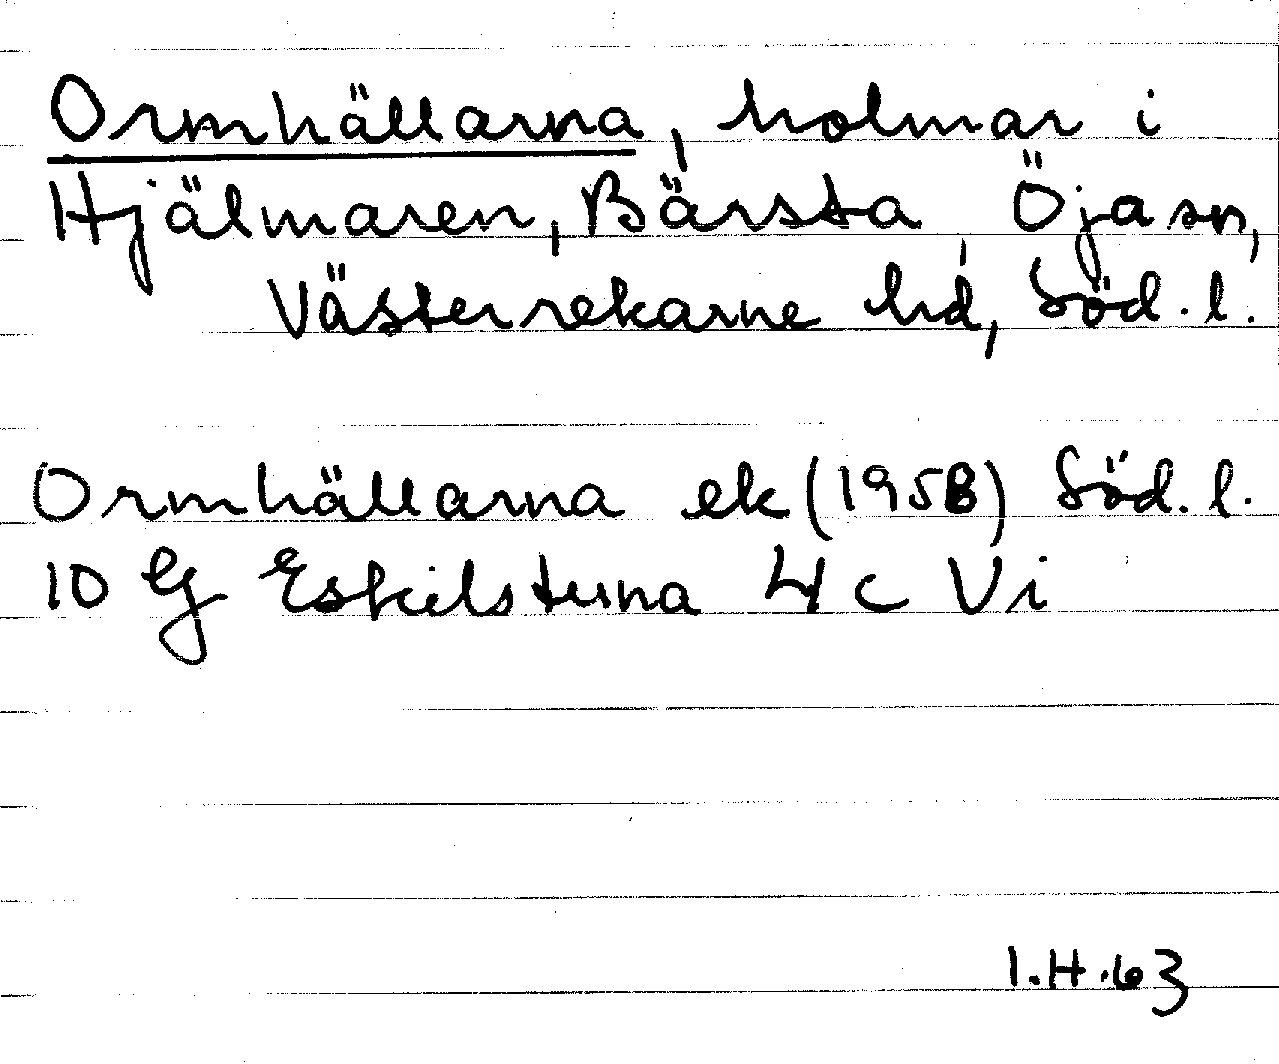 Ormhällarna, holmar i
Hjälmaren, Bärsta, Öja sn,
Västerrekarne hd, Söd. l.
Ormhällarna ek (1958) Söd. l.
10 G Eskilstuna 4 c Vi
I.H.63